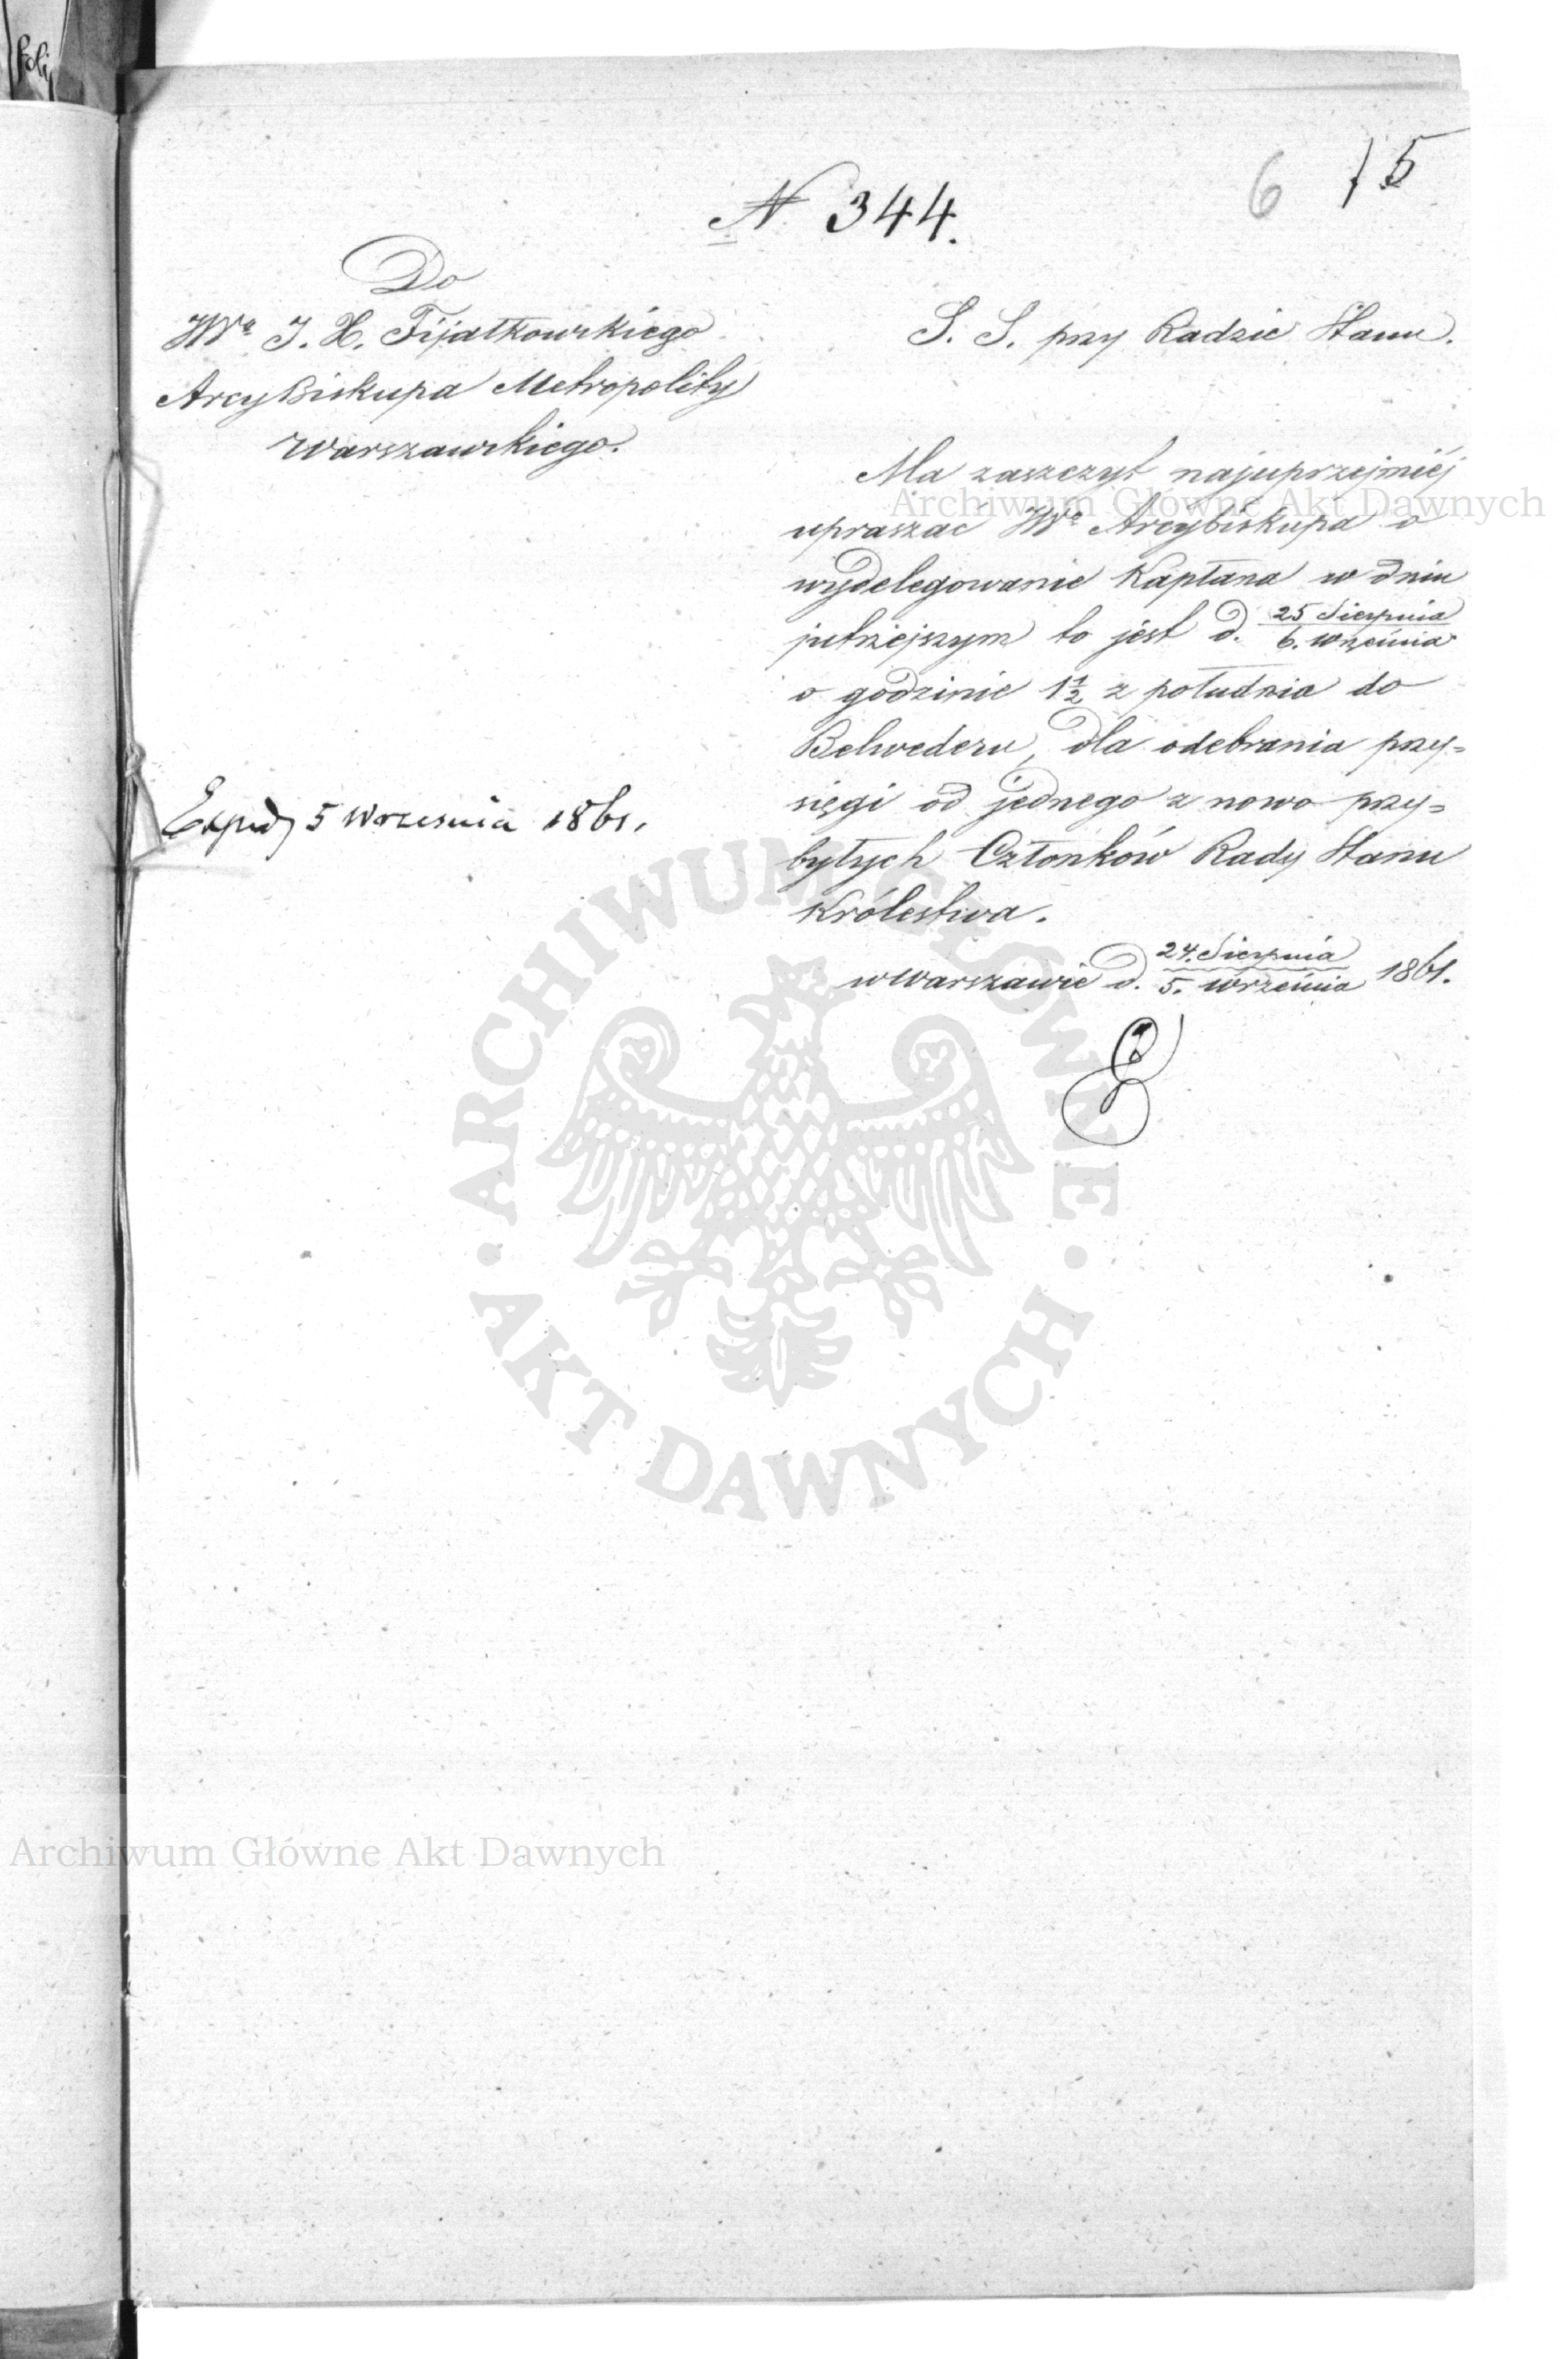 6 15
N 344.
Do
JWo J. X. Fijałkowskiego
ArcyBiskupa Metropolity
Warszawskiego.
S. S. przy Radzie Stanu.
Ma zaszczyt najuprzejmiéj
upraszać JWo Arcybiskupa o
wydelegowanie Kapłana w dniu
jutrzejszym to jest d. 25 Sierpnia / 6. września
o godzinie 1 1/2 z południa do
Belwederu, dla odebrania przy=
sięgi od jednego z nowo przy=
byłych Członków Rady Stanu
Królestwa.
w Warszawie d. 24. Sierpnia / 5. września 1861.
Exped 5 Wrzesnia 1861.
Archiwum Główne Akt Dawnych
ARCHIWUM GŁÓWNE AKT DAWNYCH
Archiwum Główne Akt Dawnych